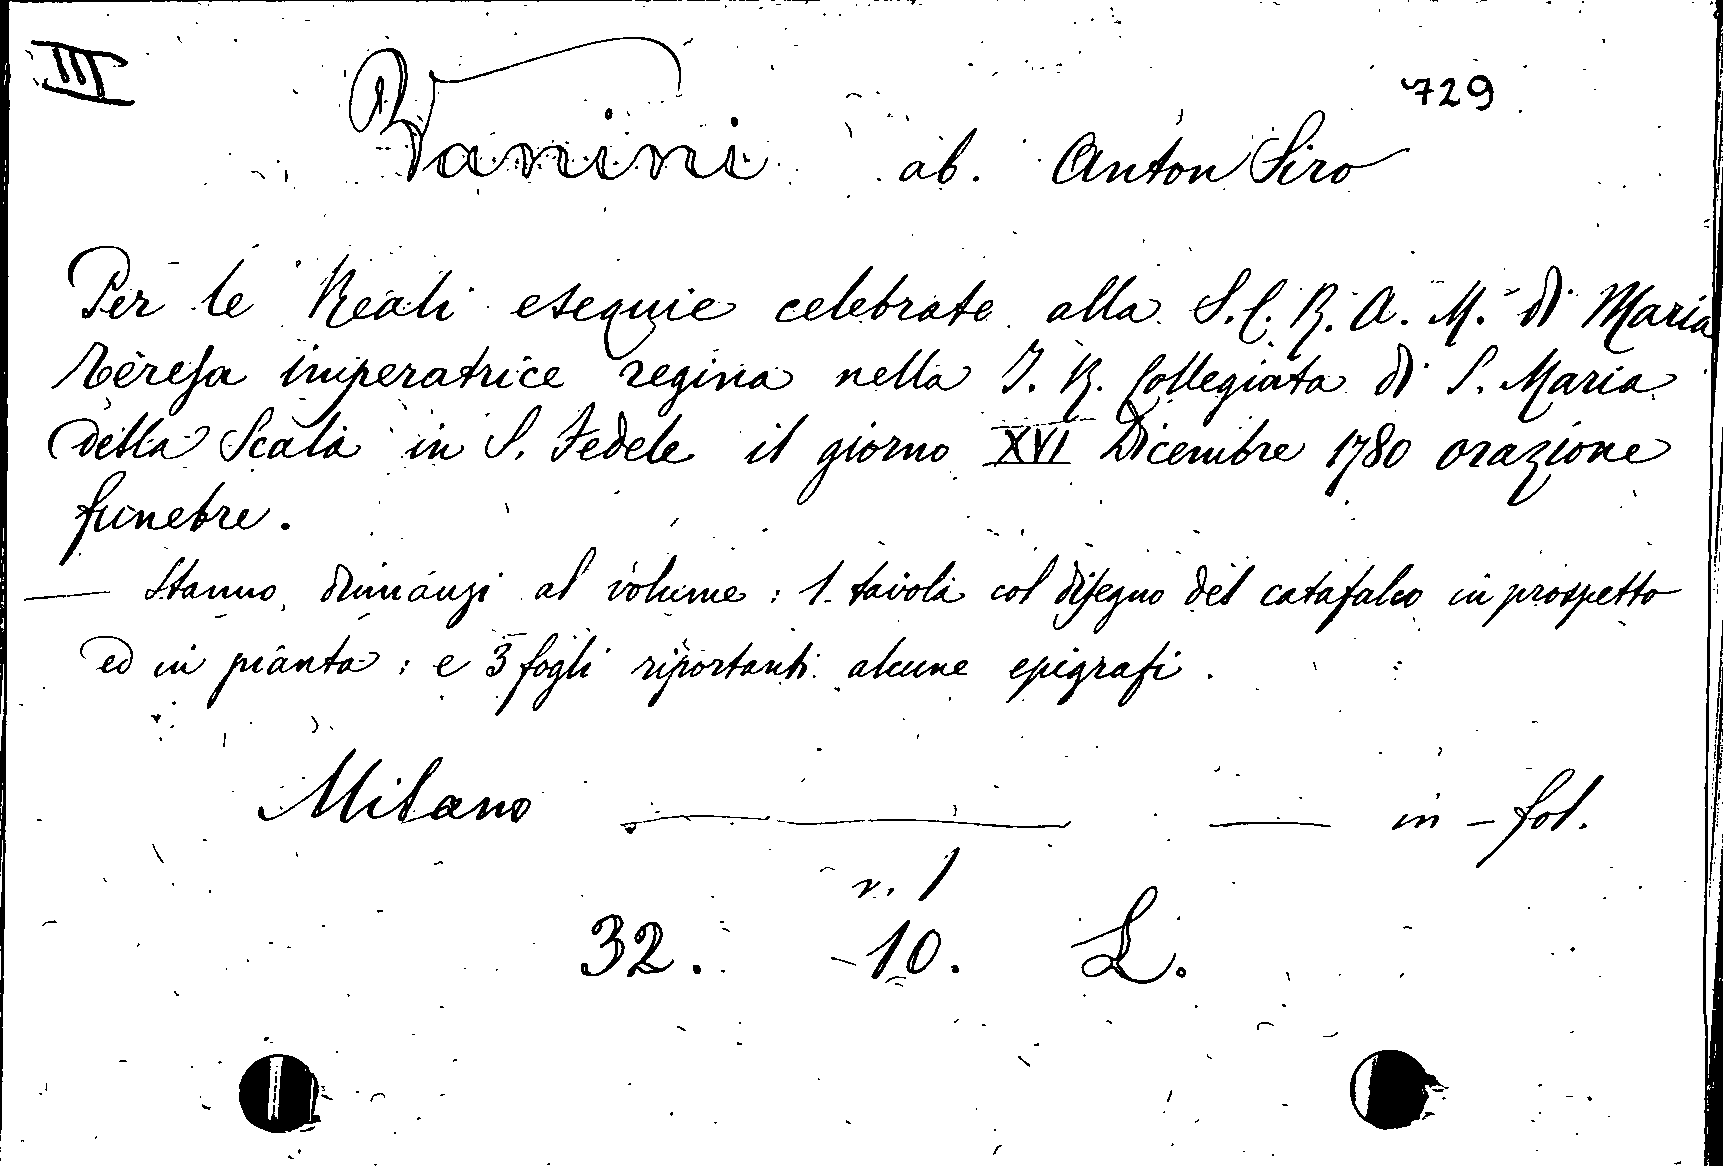 III
729
Vanini ab. Anton Siro
Per le Reali esequie celebrate alla S. C. R. A. M. di Maria
Teresa imperatrice regina nella I. R. Collegiata di S. Maria
della Scala in S. Fedele il giorno XVI Dicembre 1780 orazione
funebre.
— Stanno dinnanzi al volume : 1 tavola col disegno del catafalco in prospetto
ed in pianta : e 3 fogli riportanti alcune epigrafi.
Milano — — in - fol.
n. 1
32. 10. L.